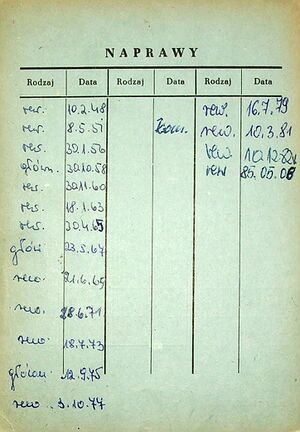 NAPRAWY
Rodzaj Data Rodzaj Data Rodzaj Data
rew. 10.2.48 rew. 16.7.79
rew. 8.5.51 rew. 10.3.81
rew. 30.1.56 rew. 10.12.82
główn. 30.10.58 rew 85.05.06
rew. 30.11.60
rew. 18.1.63
rew. 30.4.65
główn 23.5.67
rew. 21.6.69
rew. 28.6.71
rew. 18.7.73
główn. 12.9.75
rew. 3.10.77